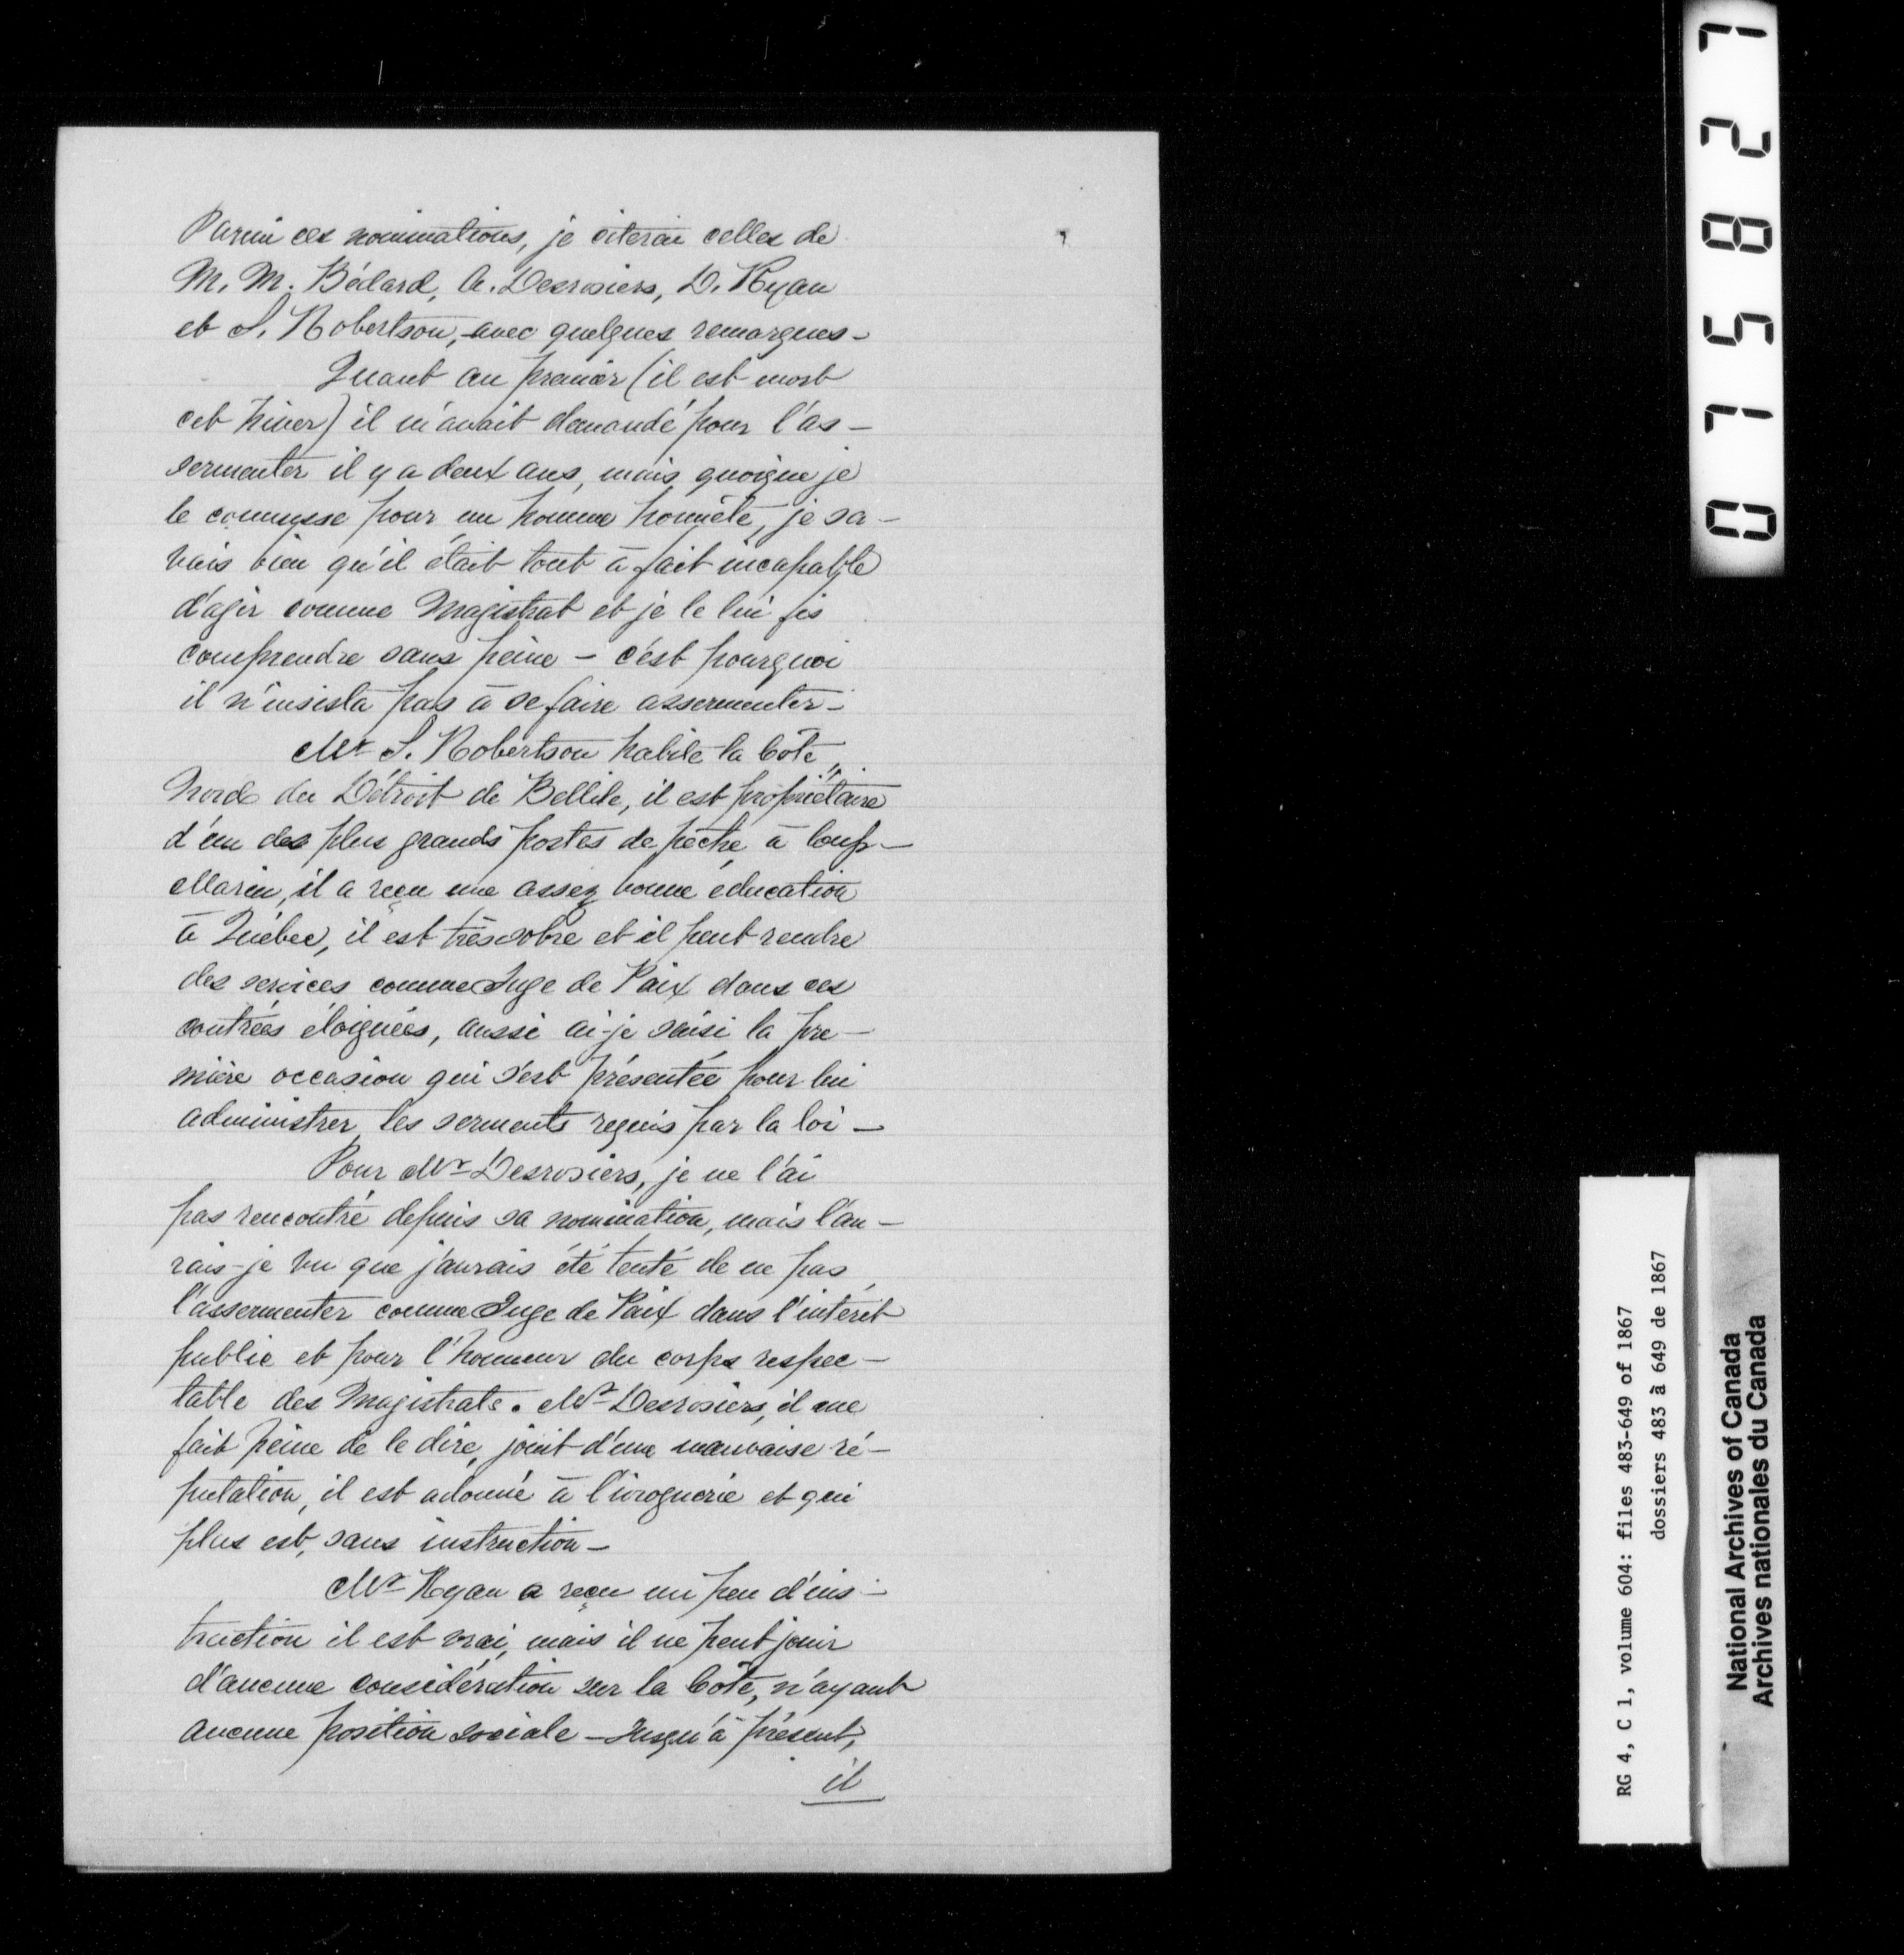 Parmi ces nominations, je citerai celles de
M. M. Bédard, A. Desrosiers, D. Ryan
et S. Robertson, avec quelques remarques -
Quant au premier (il est mort
cet hiver) il m'avait demandé pour l'as-
sermenter il y a deux ans, mais quoique je
le connusse pour un homme honnête, je sa-
vais bien qu'il était tout à fait incapable
d'agir comme Magistrat et je le lui fis
comprendre sans peine - c'est pourquoi
il n'insista pas à se faire assermenter -
Mr S. Robertson habite la Côte
Nord du Détroit de Bellile, il est propriétaire
d'un des plus grands postes de pêche à loup-
Marin, il a reçu une assez bonne education
à Québec, il est très sobre et il peut rendre
des services comme Juge de Paix dans ces
contrées éloignées, aussi ai-je saisi la pre-
mière occasion qui s'est présentée pour lui
administrer les serments requis par la loi -
Pour Mr Desrosiers, je ne l'ai
pas rencontré depuis sa nomination, mais l'au-
rais-je vu que j'aurais été tenté de ne pas
l'assermenter comme Juge de Paix dans l'intérêt
public et pour l'honneur du corps respec-
table des Magistrats. Mr Desrosiers, il me
fait peine de le dire, jouit d'une mauvaise ré-
putation, il est adonné à l'ivrognerie et qui
plus est, sans instruction -
Mr Ryan a reçu un peu d'ins-
truction il est vrai, mais il ne peut jouir
d'aucune considération sur la Côte, n'ayant
aucune position sociale - Jusqu'à présent,
il
075827
RG 4, C 1, volume 604: files 483-649 of 1867
dossiers 483 à 649 de 1867
National Archives of Canada
Archives nationales du Canada